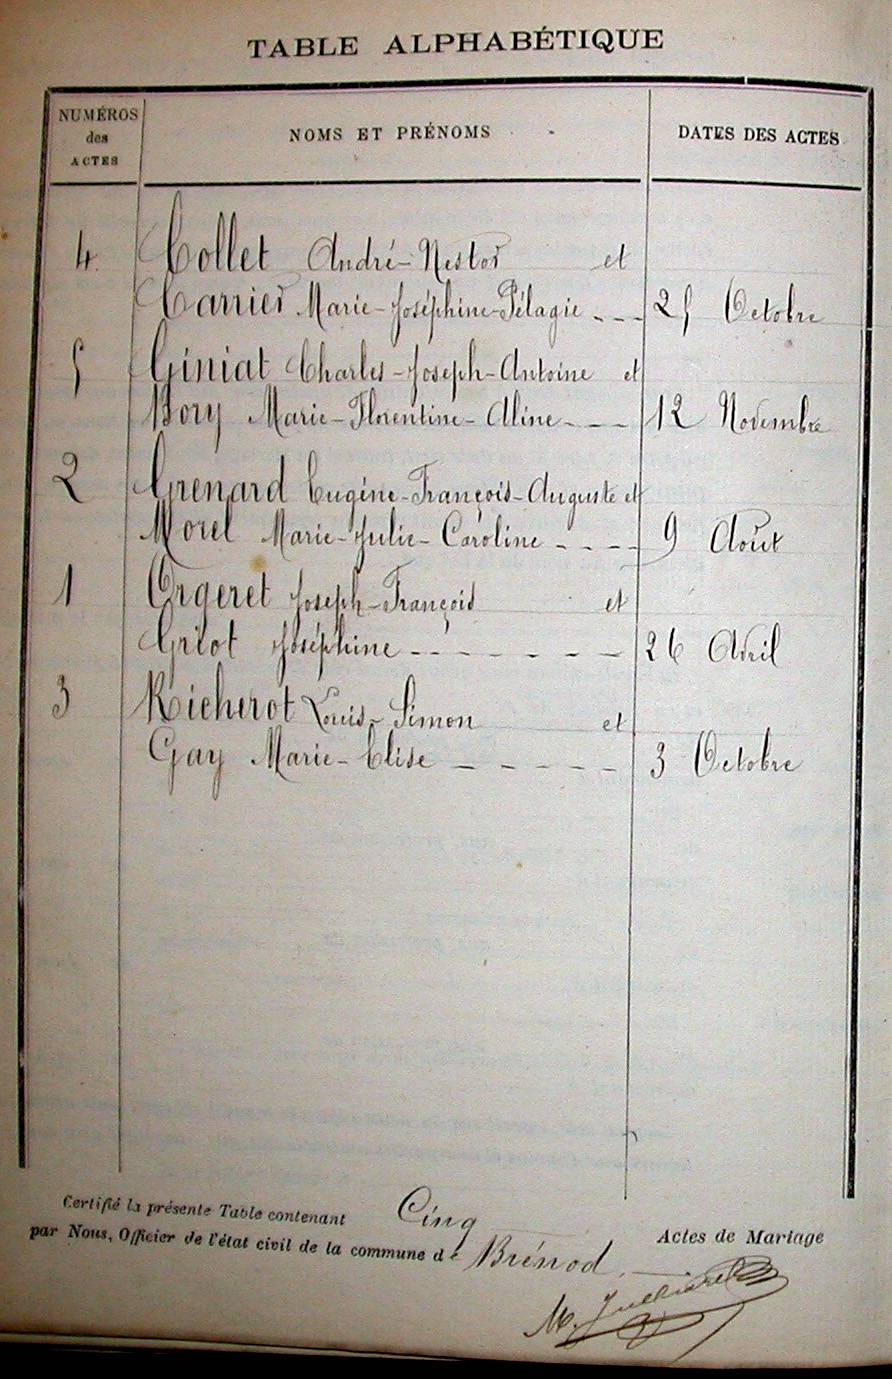 TABLE ALPHABÉTIQUE
NUMÉROS des ACTES NOMS ET PRÉNOMS DATES DES ACTES
4 Collet André-Nestor et
Carrier Marie-Joséphine-Pélagie 25 Octobre
5 Giniat Charles-Joseph-Antoine et
Bory Marie-Florentine-Aline 12 Novembre
2 Grenard Eugène-François-Auguste et
Morel Marie-Julie-Caroline 9 Août
1 Orgeret Joseph-François et
Griot Joséphine 26 Avril
3 Richerot Louis-Simon et
Gay Marie-Elise 3 Octobre
Certifié la présente Table contenant Cinq Actes de Mariage
par Nous, Officier de l'état civil de la commune de Brénod